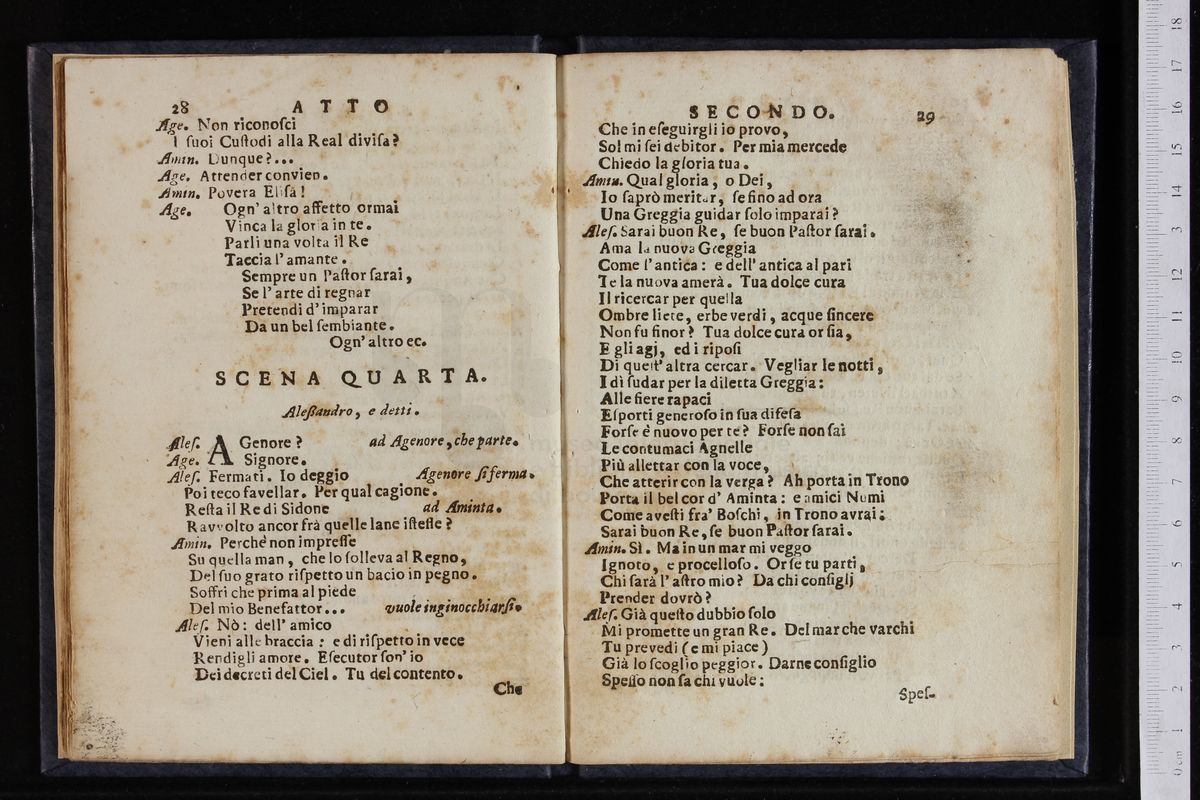 28 ATTO
Age. Non riconoſci
I ſuoi Cuſtodi alla Real diviſa?
Amin. Dunque?...
Age. Attender convien.
Amin. Povera Eliſa!
Age. Ogn' altro affetto ormai
Vinca la gloria in te.
Parli una volta il Re
Taccia l' amante.
Sempre un Paſtor ſarai,
Se l' arte di regnar
Pretendi d' imparar
Da un bel ſembiante.
Ogn' altro ec.
SCENA QUARTA.
Aleſſandro, e detti.
Aleſ. AGenore? ad Agenore, che parte.
Age. Signore.
Aleſ. Fermati. Io deggio Agenore ſi ferma.
Poi teco favellar. Per qual cagione.
Reſta il Re di Sidone ad Aminta.
Ravvolto ancor frà quelle lane iſteſſe?
Amin. Perchè non impreſſe
Su quella man, che lo ſolleva al Regno,
Del ſuo grato riſpetto un bacio in pegno.
Soffri che prima al piede
Del mio Benefattor... vuole inginocchiarſi.
Aleſ. Nò: dell' amico
Vieni alle braccia; e di riſpetto in vece
Rendigli amore. Eſecutor ſon' io
Dei decreti del Ciel. Tu del contento.
Che
SECONDO. 29
Che in eſeguirgli io provo,
Sol mi ſei debitor. Per mia mercede
Chiedo la gloria tua.
Amin. Qual gloria, o Dei,
Io ſaprò meritar, ſe fino ad ora
Una Greggia guidar ſolo imparai?
Aleſ. Sarai buon Re, ſe buon Paſtor ſarai.
Ama la nuova Greggia
Come l' antica: e dell' antica al pari
Te la nuova amerà. Tua dolce cura
Il ricercar per quella
Ombre liete, erbe verdi, acque ſincere
Non fu finor? Tua dolce cura or ſia,
E gli agj, ed i ripoſi
Di queſt' altra cercar. Vegliar le notti,
I dì ſudar per la diletta Greggia:
Alle fiere rapaci
Eſporti generoſo in ſua difeſa
Forſe è nuovo per te? Forſe non ſai
Le contumaci Agnelle
Più allettar con la voce,
Che atterir con la verga? Ah porta in Trono
Porta il bel cor d' Aminta: e amici Numi
Come aveſti fra' Boſchi, in Trono avrai:
Sarai buon Re, ſe buon Paſtor ſarai.
Amin. Sì. Ma in un mar mi veggo
Ignoto, e procelloſo. Or ſe tu parti,
Chi ſarà l' aſtro mio? Da chi conſiglj
Prender dovrò?
Aleſ. Già queſto dubbio ſolo
Mi promette un gran Re. Del mar che varchi
Tu prevedi (e mi piace)
Già lo ſcoglio peggior. Darne conſiglio
Speſſo non ſa chi vuole:
Speſ-
0 cm 1 2 3 4 5 6 7 8 9 10 11 12 13 14 15 16 17 18